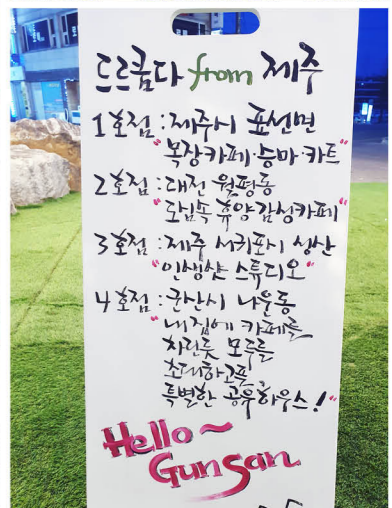 드르쿰다 from 제주
1호점 : 제주시 표선면
"목장카페·승마·카트"
2호점 : 대전 월평동
"도심속 휴양감성카페"
3호점 : 제주 서귀포시 성산
"인생샷 스튜디오"
4호점 : 군산시 나운동
"내집에 카페를
차린듯 모두를
초대하고픈,
특별한 공유하우스!"
Hello~
Gunsan